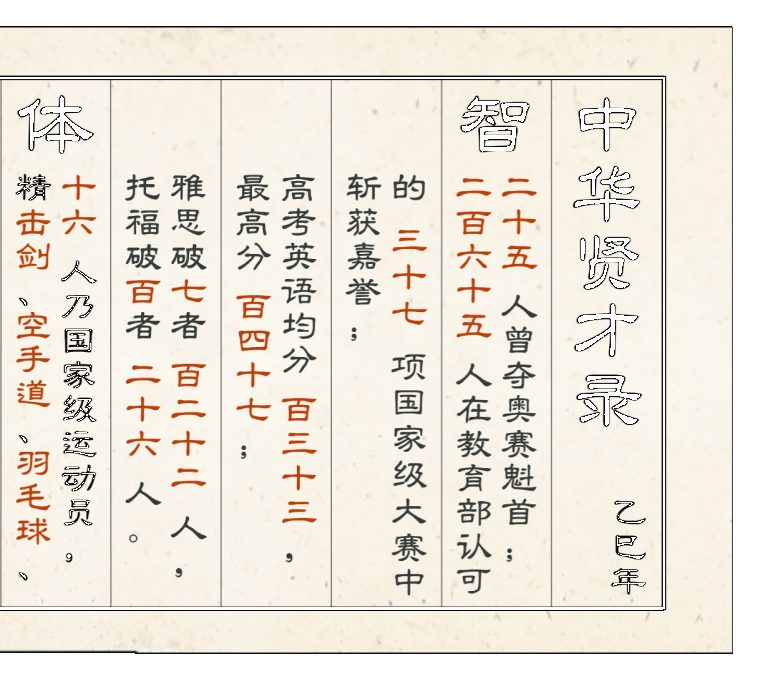 中华贤才录
乙巳年
智
二十五 人曾夺奥赛魁首；
二百六十五 人在教育部认可
的 三十七 项国家级大赛中
斩获嘉誉；
高考英语均分 百三十三，
最高分 百四十七；
雅思破七者 百二十二 人，
托福破百者 二十六 人。
体
十六 人乃国家级运动员，
精击剑、空手道、羽毛球、